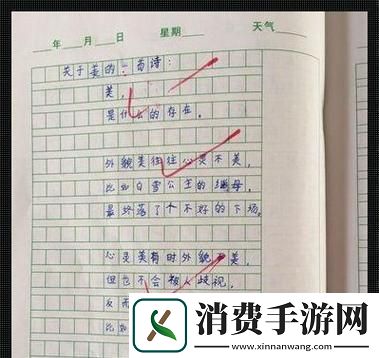 年 月 日 星期 天气
关于美的一首诗：
美，
是什么的存在。
外貌美往往心灵不美，
比如白雪公主的继母，
最终落了个不好的下场。
心灵美有时外貌不美，
但也不会被人歧视，
反而
比如
消费手游网
www.xinnanwang.com